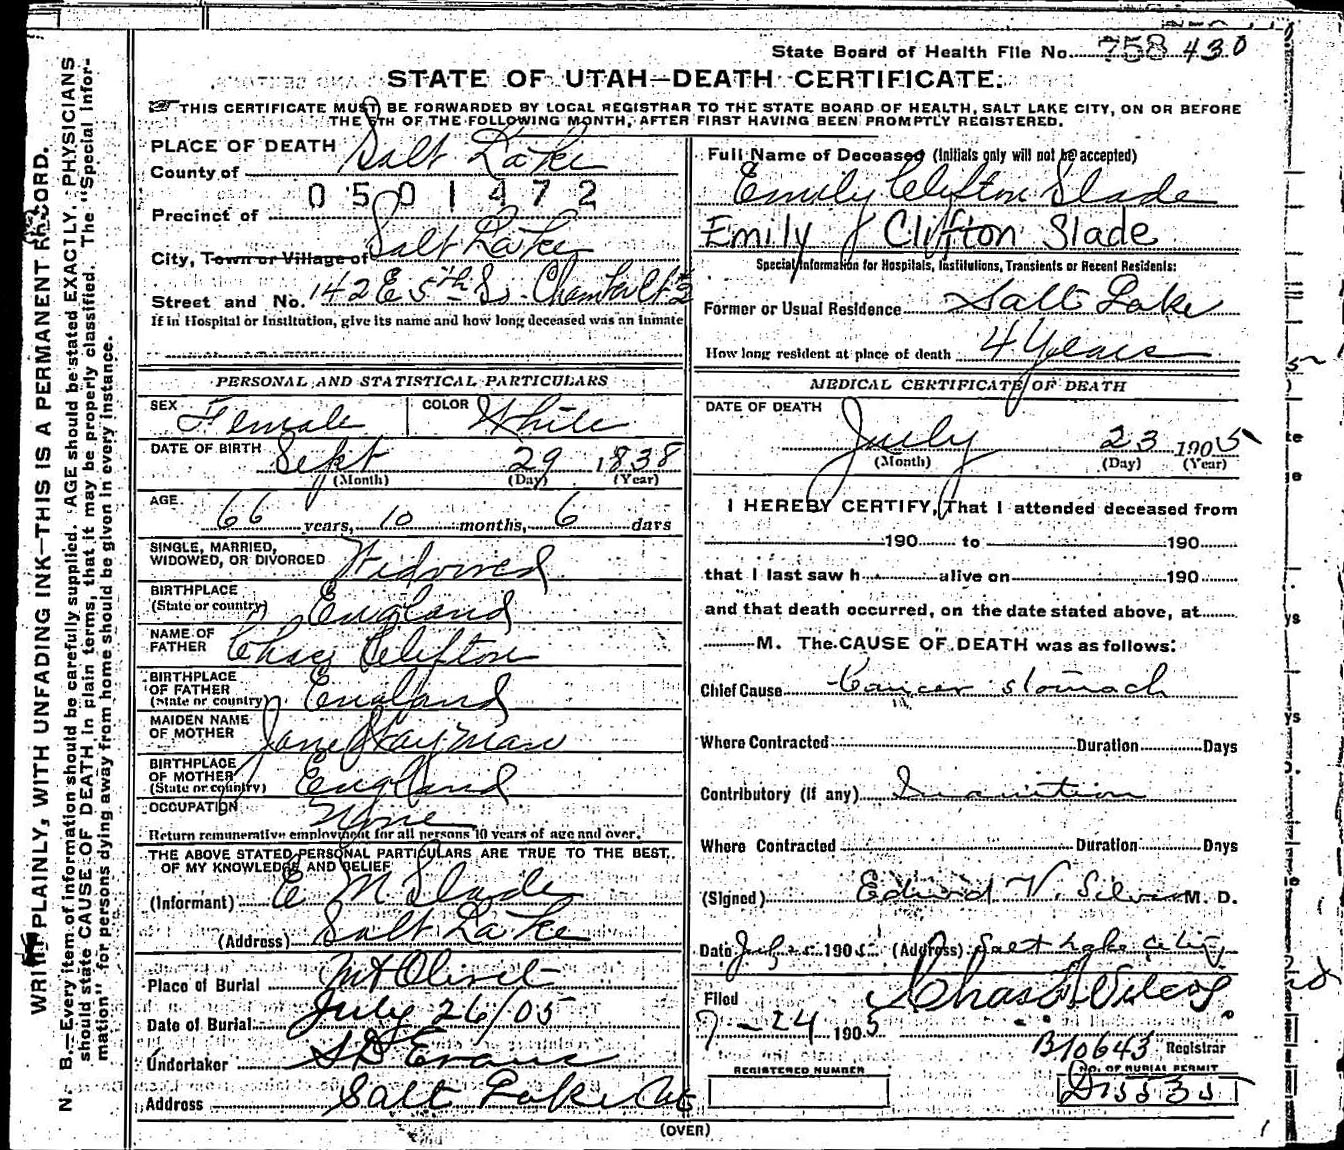 State Board of Health File No. 758 430
STATE OF UTAH—DEATH CERTIFICATE.
THIS CERTIFICATE MUST BE FORWARDED BY LOCAL REGISTRAR TO THE STATE BOARD OF HEALTH, SALT LAKE CITY, ON OR BEFORE
THE 5TH OF THE FOLLOWING MONTH, AFTER FIRST HAVING BEEN PROMPTLY REGISTERED.
PLACE OF DEATH
County of Salt Lake
0501472
Precinct of
City, Town or Village of Salt Lake
Street and No. 142 E 5th So.
If in Hospital or Institution, give its name and how long deceased was an inmate
Full Name of Deceased (Initials only will not be accepted)
Emily Clifton Slade
Emily Clifton Slade
Special Information for Hospitals, Institutions, Transients or Recent Residents:
Former or Usual Residence Salt Lake
How long resident at place of death 4 Years
PERSONAL AND STATISTICAL PARTICULARS
SEX Female COLOR White
DATE OF BIRTH Sept 29 1838
(Month) (Day) (Year)
AGE 66 years, 10 months, 6 days
SINGLE, MARRIED,
WIDOWED, OR DIVORCED Widowed
BIRTHPLACE
(State or country) England
NAME OF
FATHER Chas Clifton
BIRTHPLACE
OF FATHER
(State or country) England
MAIDEN NAME
OF MOTHER Jane Hayman
BIRTHPLACE
OF MOTHER
(State or country) England
OCCUPATION None
Return remunerative employment for all persons 10 years of age and over.
THE ABOVE STATED PERSONAL PARTICULARS ARE TRUE TO THE BEST
OF MY KNOWLEDGE AND BELIEF
(Informant) E M Slade
(Address) Salt Lake
Place of Burial Mt Olivet
Date of Burial July 26/05
Undertaker S D Evans
Address Salt Lake Cy
MEDICAL CERTIFICATE OF DEATH
DATE OF DEATH
July 23 1905
(Month) (Day) (Year)
I HEREBY CERTIFY, That I attended deceased from
190 to 190
that I last saw h alive on 190
and that death occurred, on the date stated above, at
M. The CAUSE OF DEATH was as follows:
Chief Cause Cancer stomach
Where Contracted Duration Days
Contributory (If any) Inanition
Where Contracted Duration Days
(Signed) Edward V. Silver M. D.
Date July 1905 (Address) Salt Lake City
Filed
7-24 1905 Chas F Wilcox
B10643 Registrar
REGISTERED NUMBER NO. OF BURIAL PERMIT
(OVER)
WRITE PLAINLY, WITH UNFADING INK—THIS IS A PERMANENT RECORD.
N. B.—Every item of information should be carefully supplied. AGE should be stated EXACTLY. PHYSICIANS
should state CAUSE OF DEATH in plain terms, that it may be properly classified. The "Special Infor-
mation" for persons dying away from home should be given in every instance.